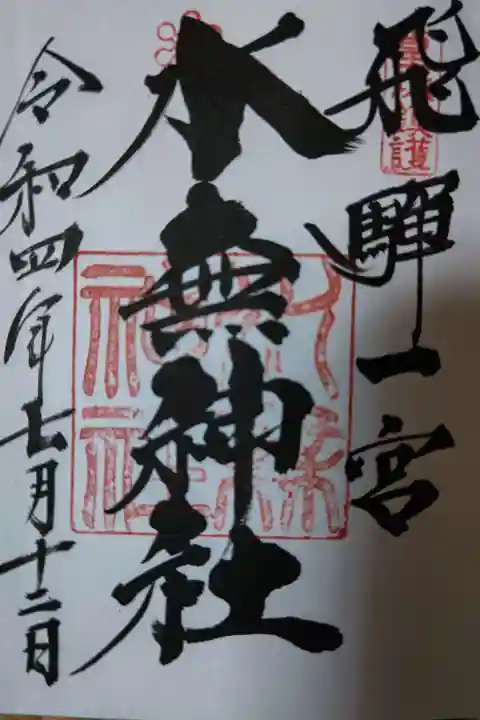 飛騨一宮
水無神社
令和四年七月十二日